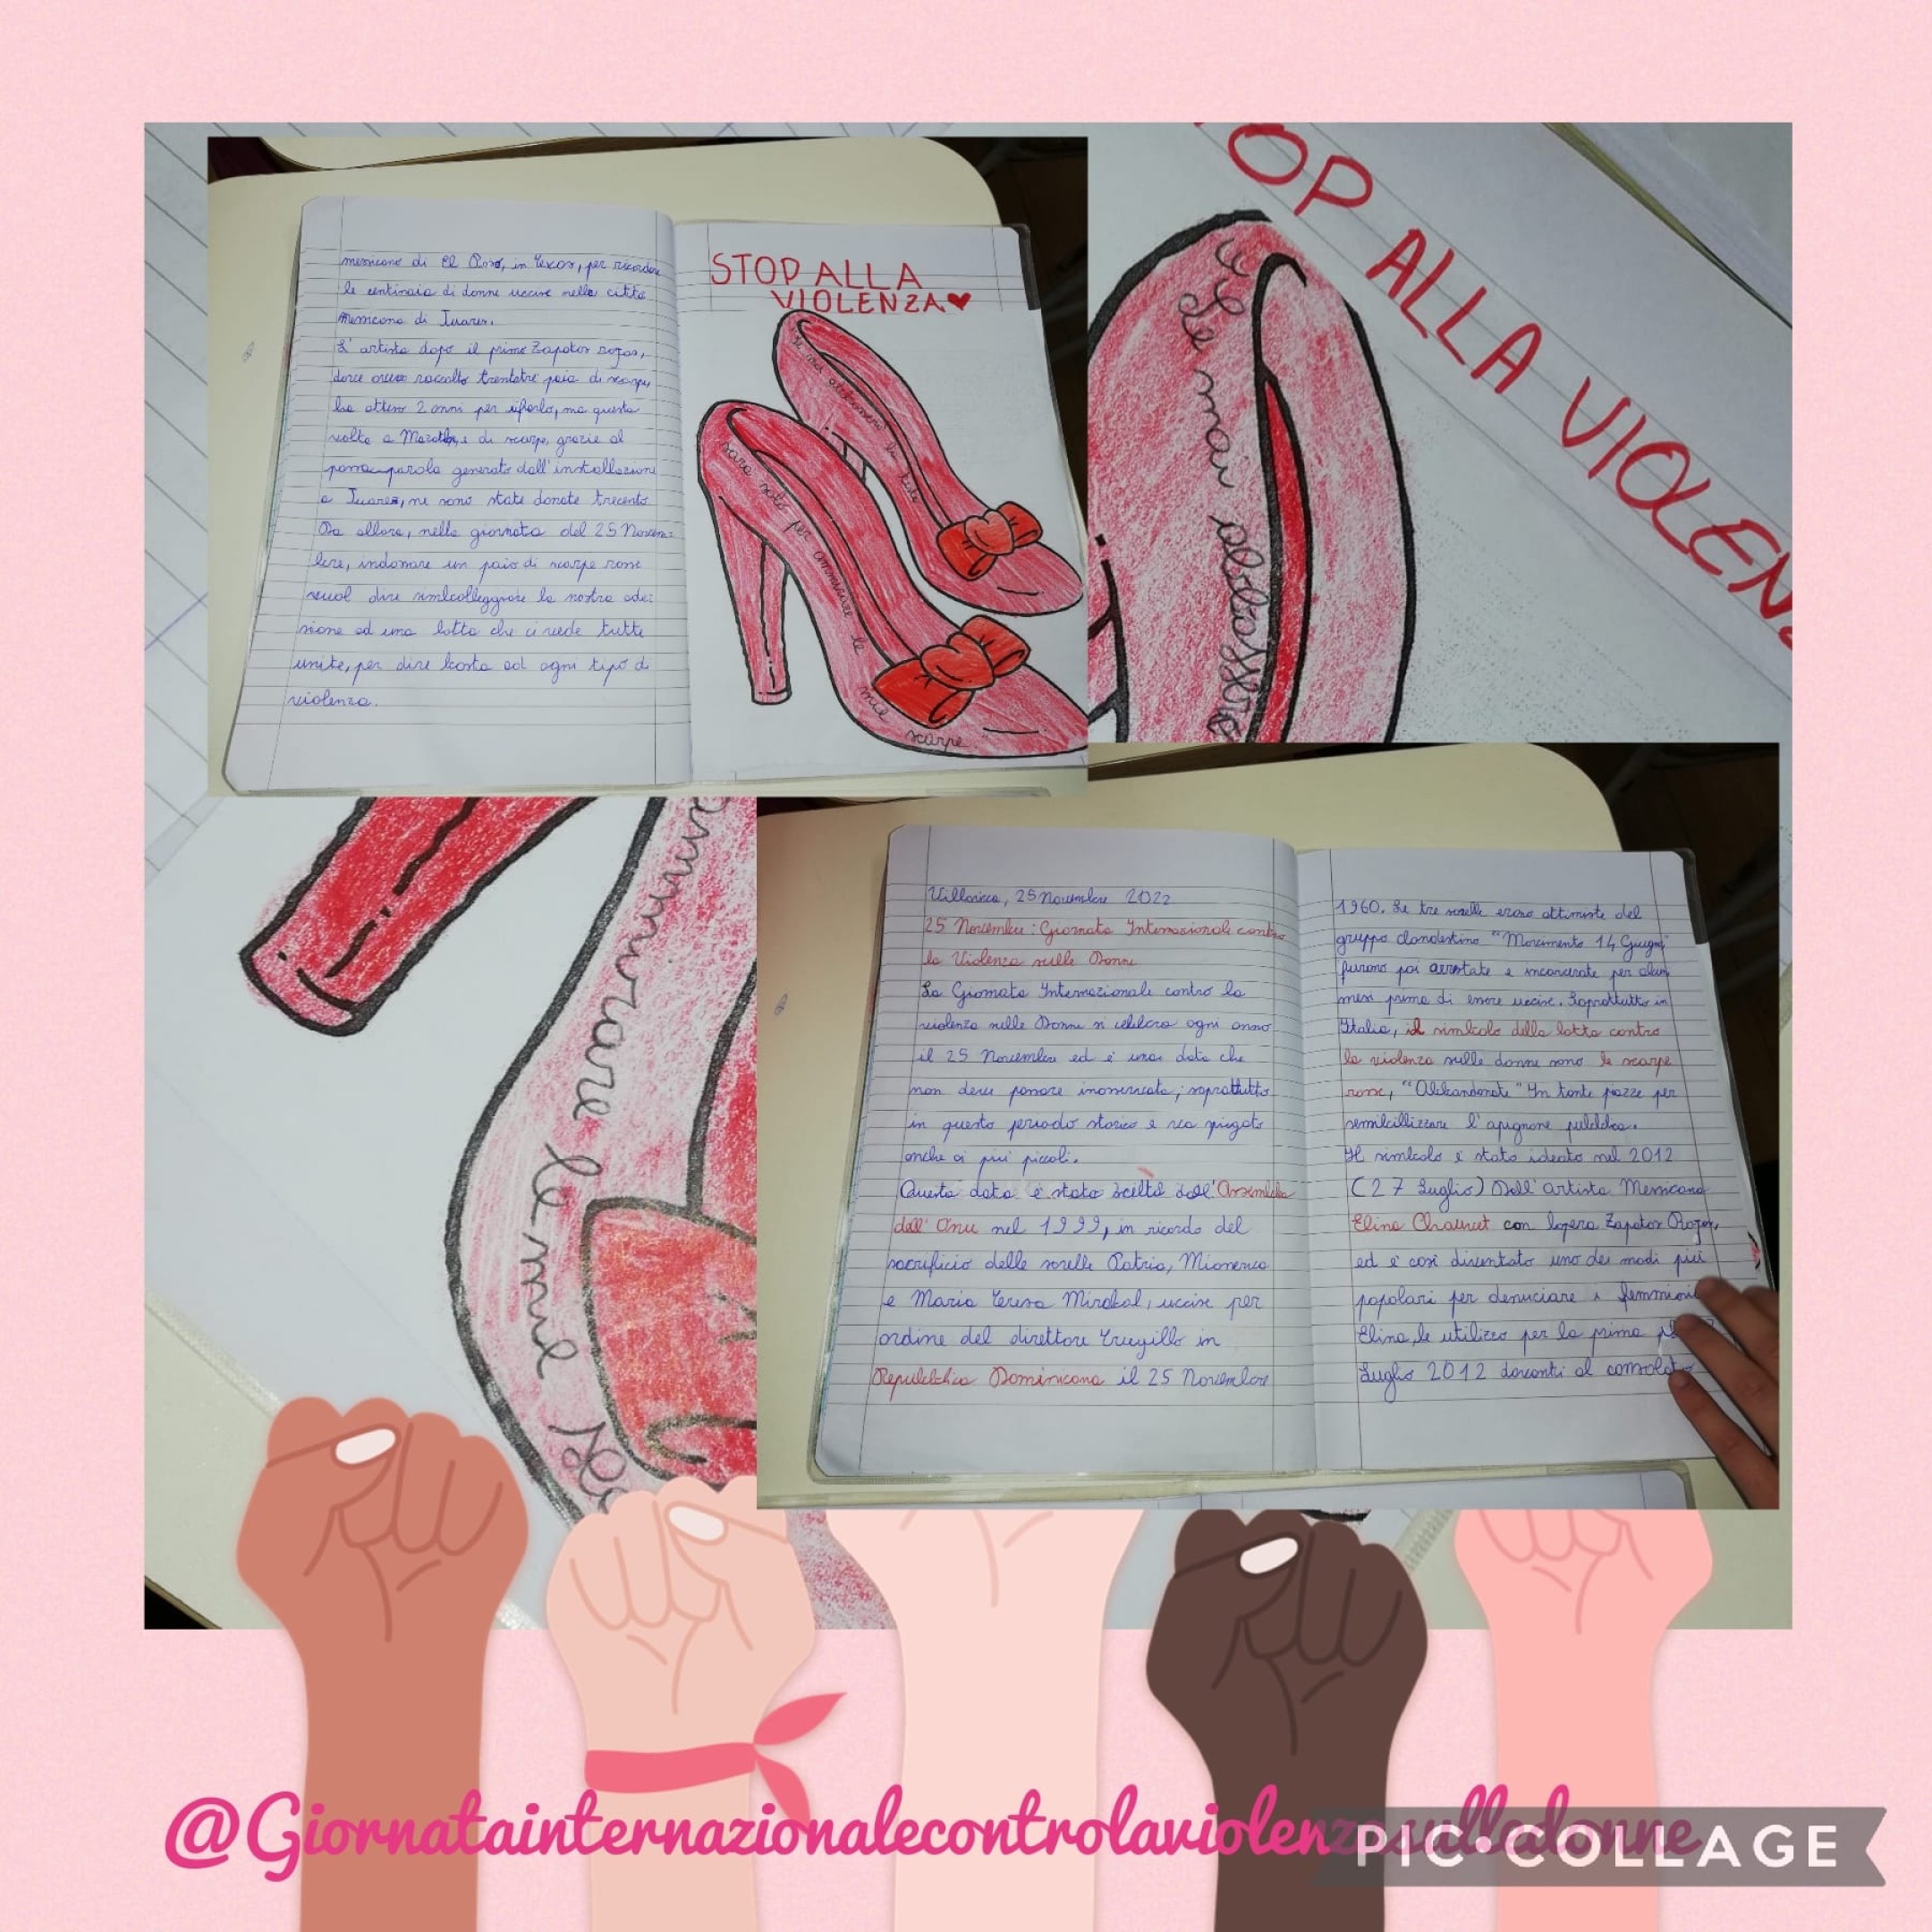 messicano di El Paso, in Texas, per ricordare
le centinaia di donne uccise nella città
Messicana di Juarez.
L'artista dopo il primo Zapatos rojos,
dove aveva raccolto trentatré paia di scarpe,
ha atteso 2 anni per rifarlo, ma questa
volta a e di scarpe, grazie al
passaparola generato dall'installazione
a Juarez, ne sono state donate trecento
Da allora, nella giornata del 25 Novem-
bre, indossare un paio di scarpe rosse
vuol dire simboleggiare la nostra ade-
sione ad una lotta che ci vede tutte
unite, per dire basta ad ogni tipo di
violenza.
STOP ALLA
VIOLENZA
Se mai abbasserò la testa
sarà solo per ammirare le
mie
scarpe
OP ALLA VIOLEN
Se mai abbasserò
ammirare le mie
Villaricca, 25 Novembre 2022
25 Novembre: Giornata Internazionale contro
la Violenza sulle Donne
La Giornata Internazionale contro la
violenza sulle Donne si celebra ogni anno
il 25 Novembre ed è una data che
non deve passare inosservata; soprattutto
in questo periodo storico e va spiegata
anche ai più piccoli.
Questa data è stata scelta dall'Assemblea
dell'Onu nel 1999, in ricordo del
sacrificio delle sorelle Patria, Minerva
e Maria Teresa Mirabal, uccise per
ordine del direttore Trugillo in
Repubblica Dominicana il 25 Novembre
1960. Le tre sorelle erano attiviste del
gruppo clandestino "Movimento 14 Giugno"
furono poi arrestate e incarcerate per alcuni
mesi prima di essere uccise. Soprattutto in
Italia, il simbolo della lotta contro
la violenza sulle donne sono le scarpe
rosse, "Abbandonate" In tante piazze per
l'opinione pubblica.
Il simbolo è stato ideato nel 2012
(27 Luglio) Dall'artista Messicana
Elina Chauvet con lopera Zapatos Rojos,
ed è così diventato uno dei modi più
popolari per denuciare i
Elina, le utilizzo per la prima
Luglio 2012 davanti al consolato
@Giornatainternazionalecontrolaviolenzasulledonne
PIC•COLLAGE